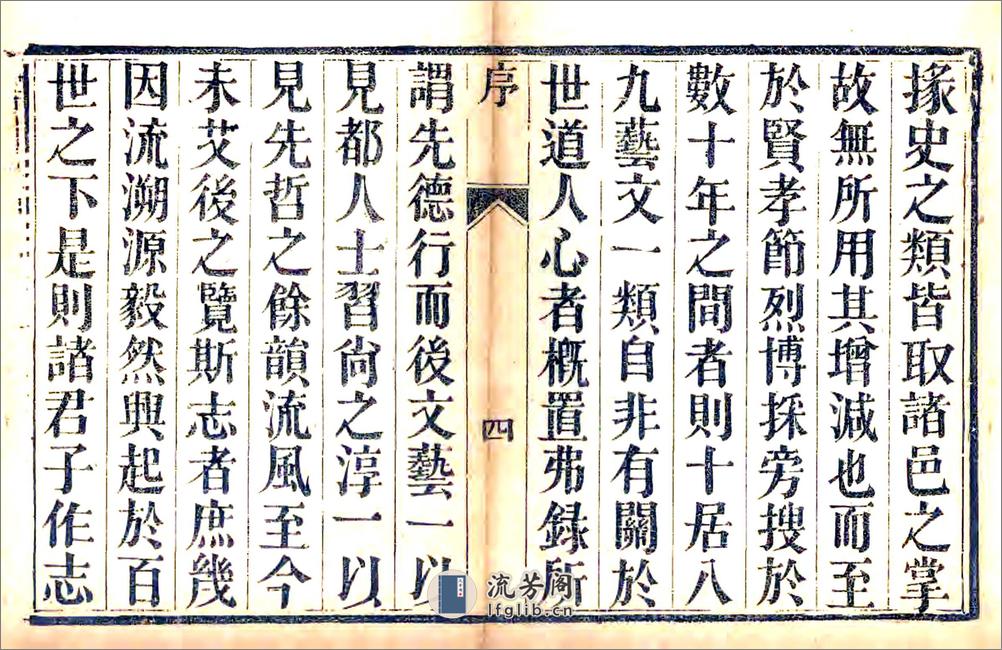 掾史之類皆取諸邑之掌
故無所用其增減也而至
於賢孝節烈博採旁搜於
數十年之間者則十居八
九藝文一類自非有關於
世道人心者概置弗録所
序
四
謂先德行而後文藝一以
見都人士習尚之淳一以
見先哲之餘韻流風至今
未艾後之覽斯志者庶幾
因流溯源毅然興起於百
世之下是則諸君子作志
流芳阁
lfglib.cn